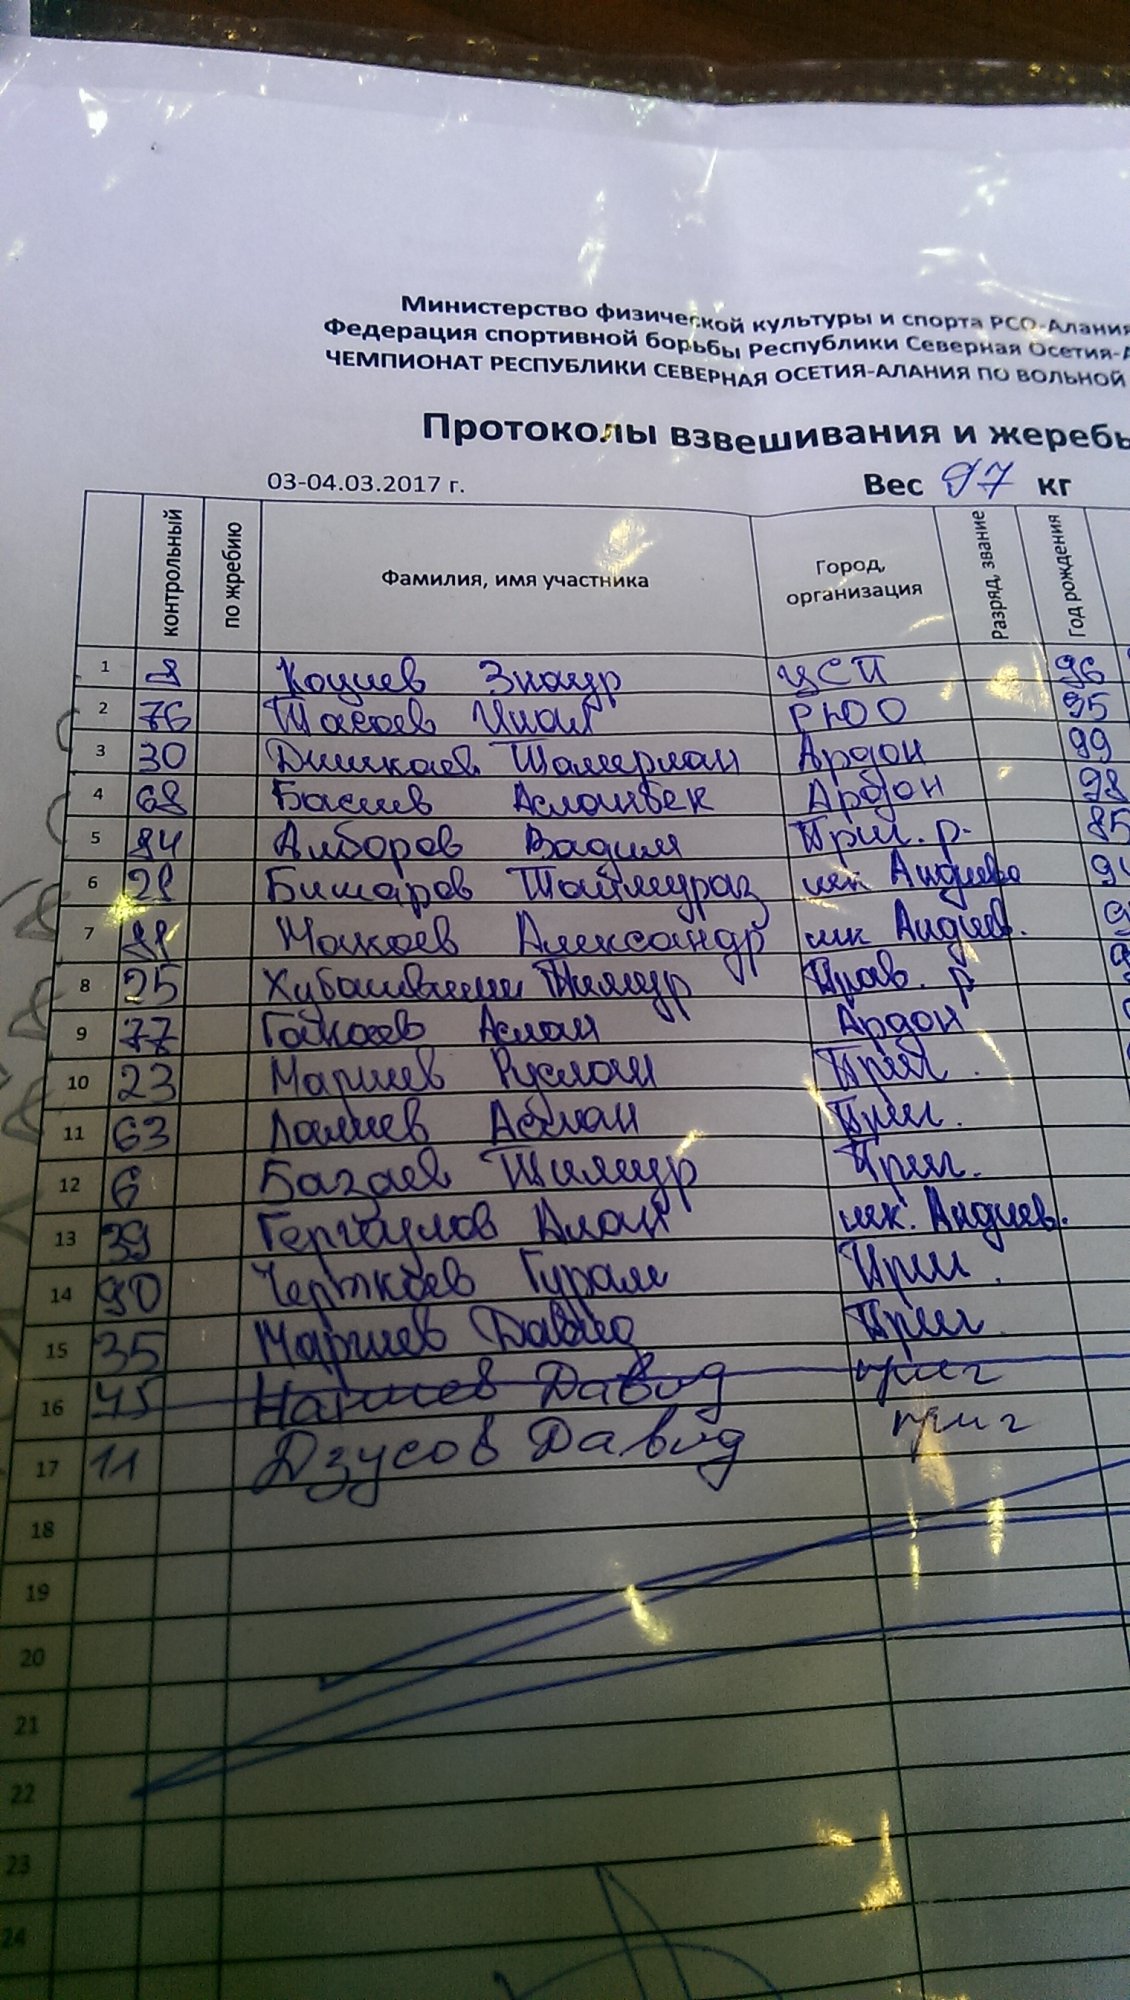 Министерство физической культуры и спорта РСО-Алания
Федерация спортивной борьбы Республики Северная Осетия-А
ЧЕМПИОНАТ РЕСПУБЛИКИ СЕВЕРНАЯ ОСЕТИЯ-АЛАНИЯ ПО ВОЛЬНОЙ
Протоколы взвешивания и жеребь
03-04.03.2017 г. Вес 97 кг
контрольный по жребию Фамилия, имя участника Город, организация Разряд, звание Год рождения
1 Коциев Знаур ЦСП 96
2 76 Тасоев РЮО 95
3 30 Тамерлан Ардон 99
4 68 Басиев Асланбек Ардон 98
5 84 Алборов Вадим Приг. р. 85
6 Бимаров Таймураз шк Андиева
7 Александр шк Андиев.
8 25 Тимур р
9 77 Аслан Ардон
10 23 Маргиев Руслан Приг.
11 63 Приг.
12 6 Базаев Тимур Приг.
13 39 Алан шк. Андиев.
14 90 Черткоев Гурам Приг.
15 35 Маргиев Давид Приг.
16 45 Давид приг
17 11 Дзусов Давид приг
18
19
20
21
22
23
24